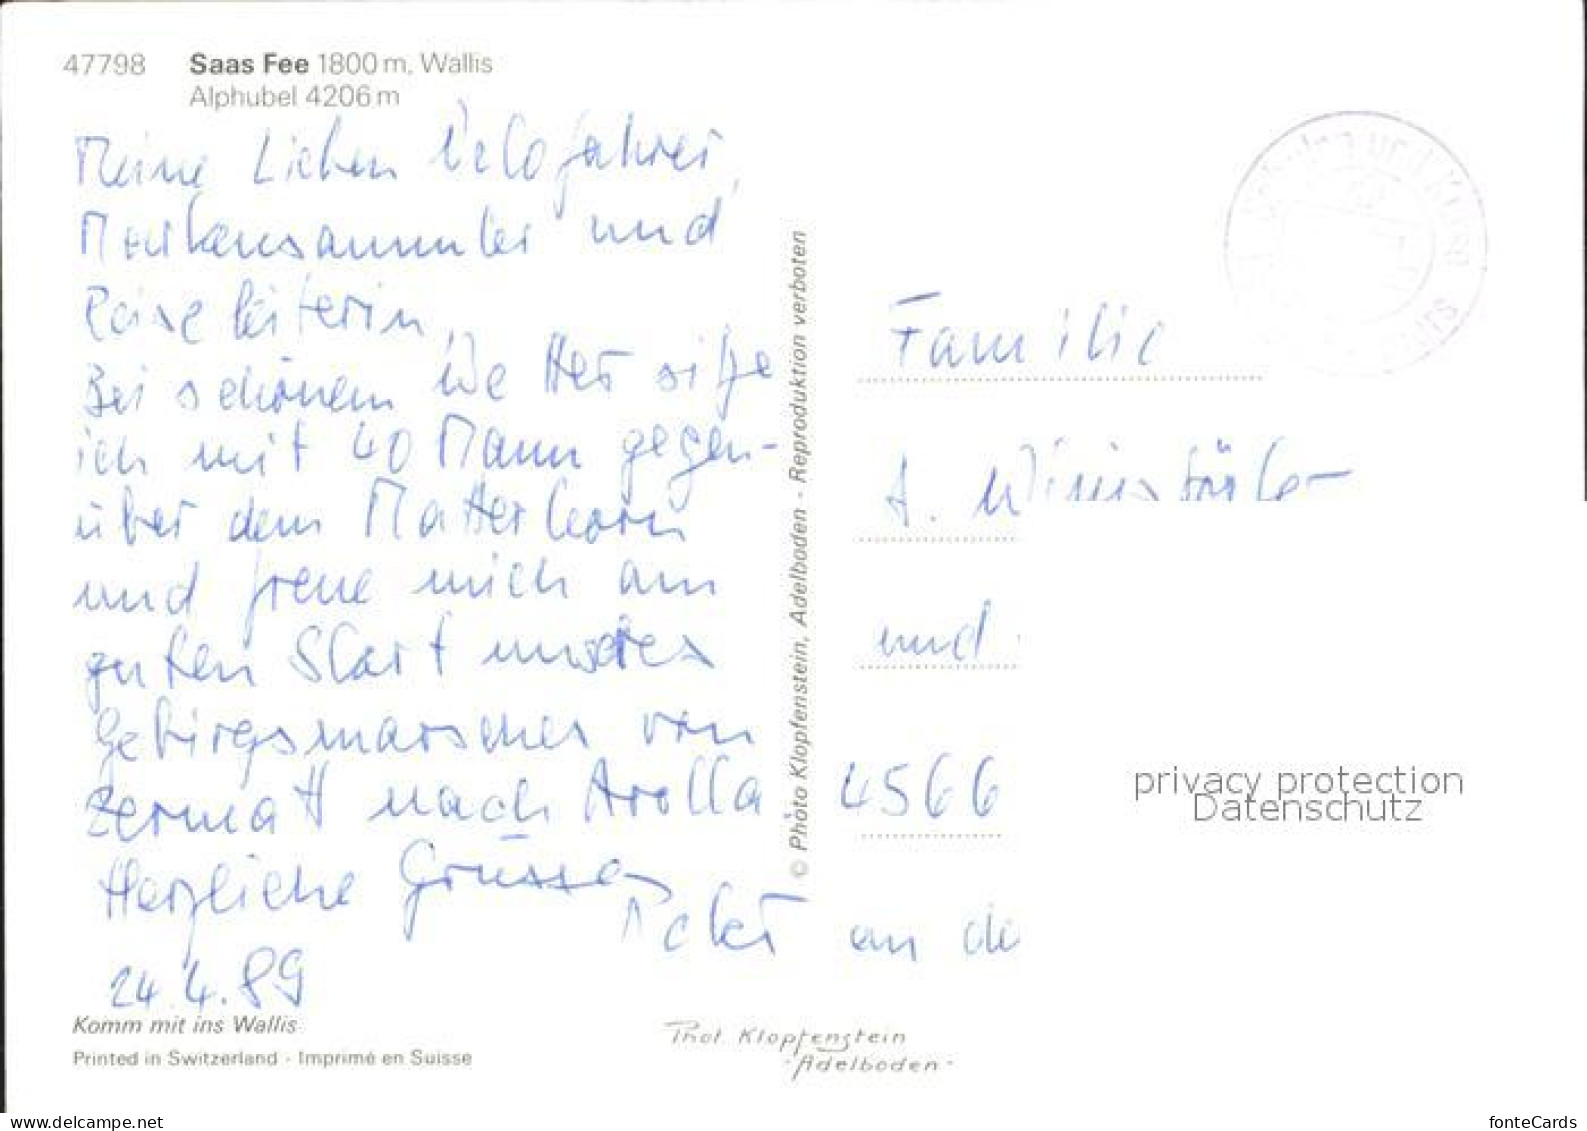 47798 Saas Fee 1800 m, Wallis
Alphubel 4206 m
Meine Lieben Velofahrer,
Markensammler und
Reiseleiterin,
Bei schönem Wetter sitze
ich mit 40 Mann gegen-
über dem Matterhorn
und freue mich am
guten Start unseres
Gebirgsmarsches von
Zermatt nach Arolla
Herzliche Grüsse
Peter
24.4.89
Komm mit ins Wallis
Printed in Switzerland - Imprimé en Suisse
© Photo Klopfenstein, Adelboden - Reproduktion verboten
Phot. Klopfenstein
- Adelboden -
Familie
A.
und
4566
an de
privacy protection
Datenschutz
www.delcampe.net
fonteCards